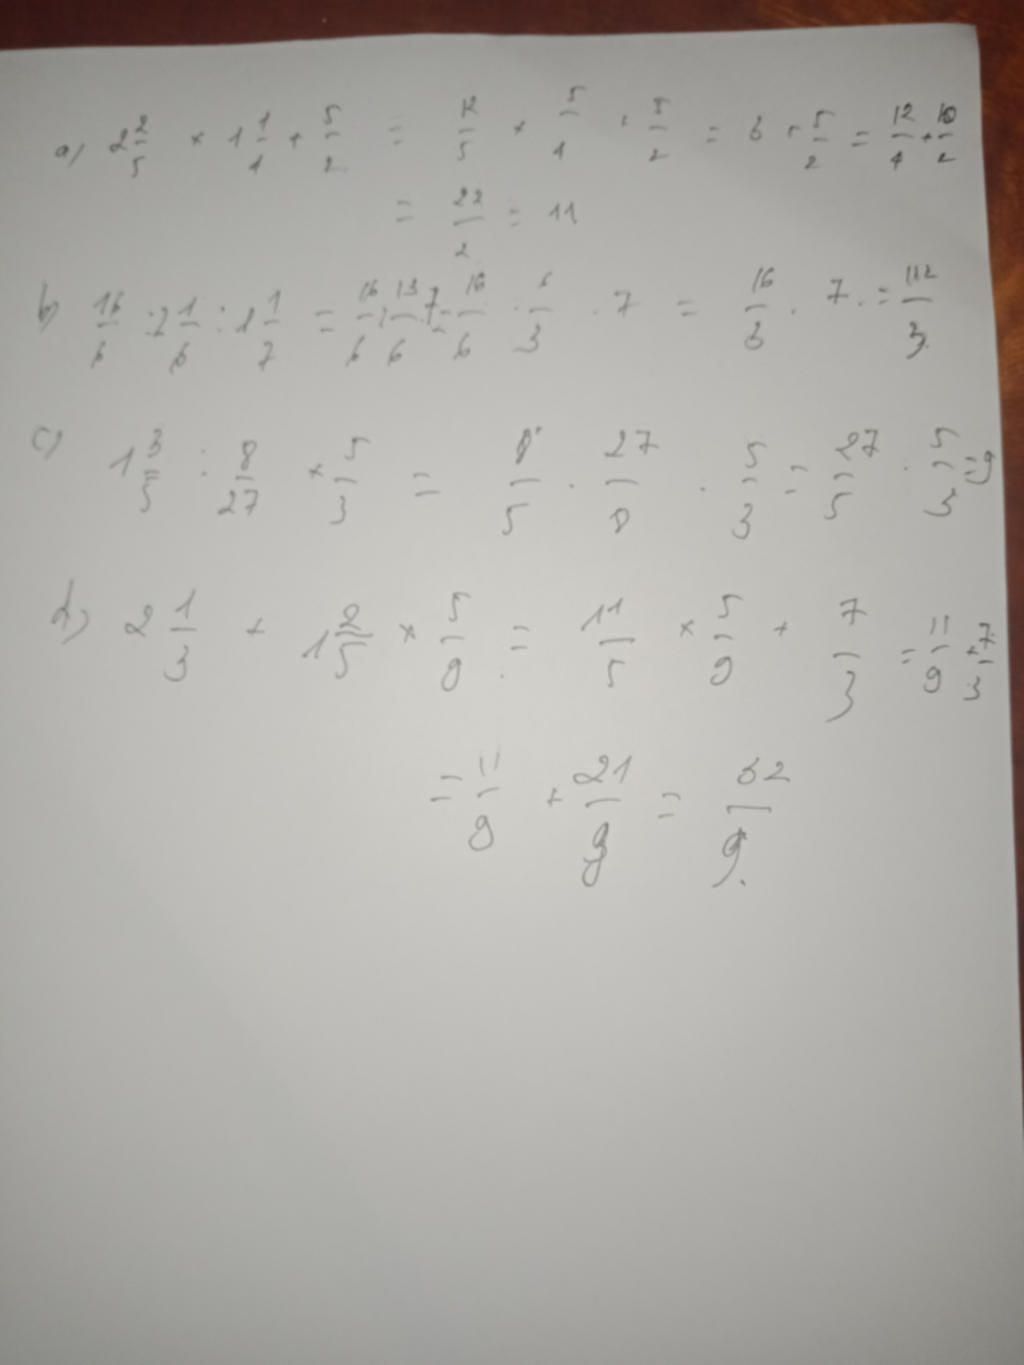 a) 2 2/5 × 1 1/4 + 5/2 = 12/5 × 5/4 + 5/2 = 3 + 5/2 = 12/4 + 10/2
= 22/2 = 11
b) 16/6 : 2 1/6 : 1 1/7 = 16/6 : 13/6 7 = 16/6 · 6/3 · 7 = 16/3 · 7 = 112/3
c) 1 3/5 : 8/27 × 5/3 = 8/5 · 27/8 · 5/3 = 27/5 · 5/3 = 9
d) 2 1/3 + 1 2/5 × 5/9 = 11/5 × 5/9 + 7/3 = 11/9 + 7/3
= 11/9 + 21/9 = 32/9.